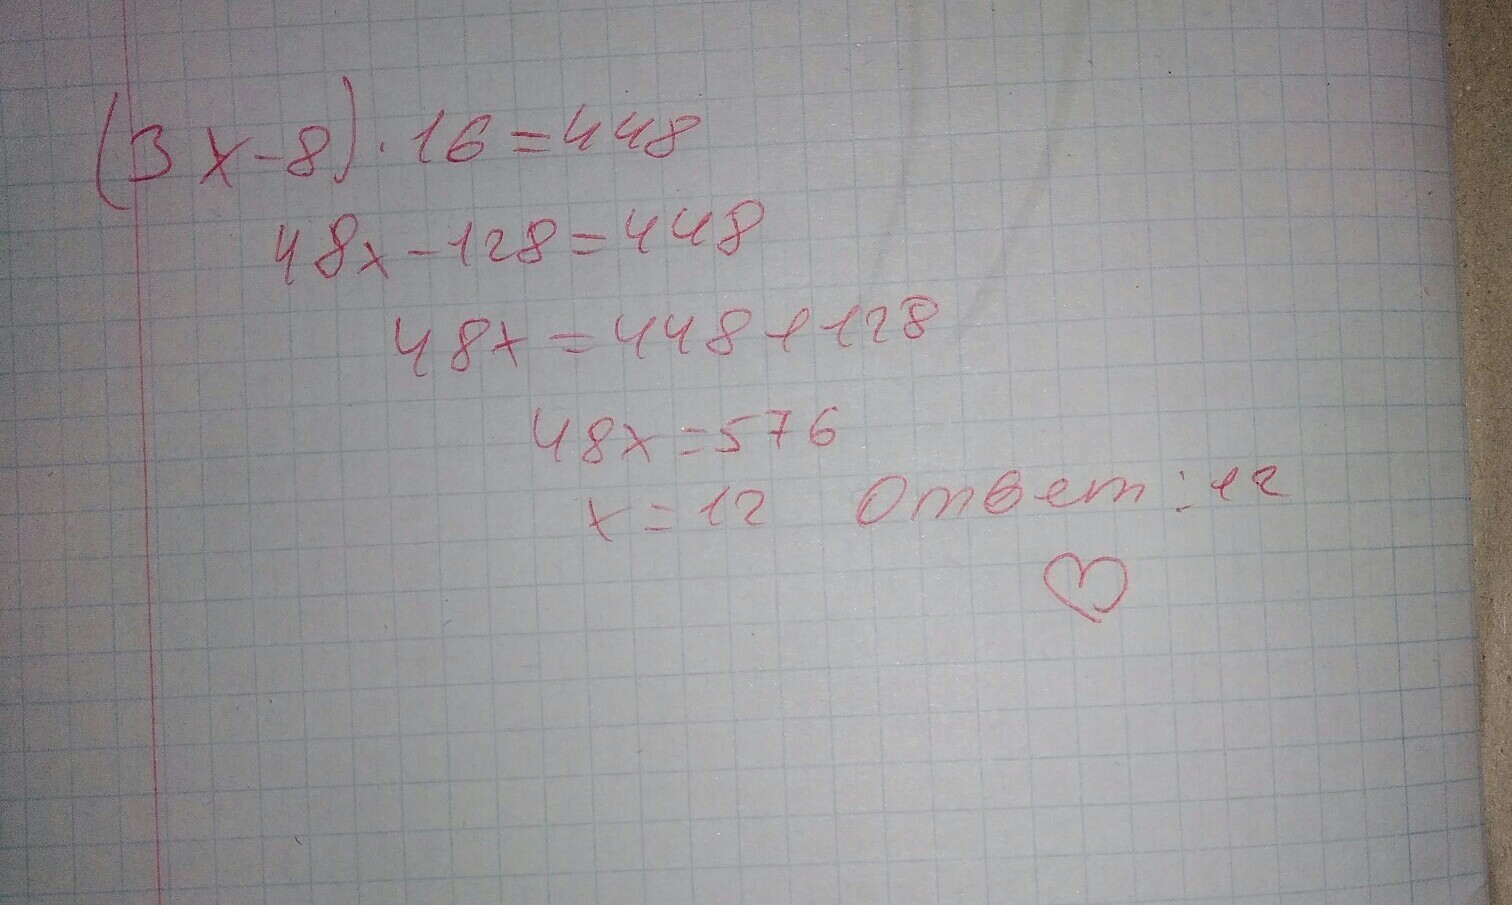 (3x-8)·16=448
48x-128=448
48x=448+128
48x=576
x=12 Ответ: 12